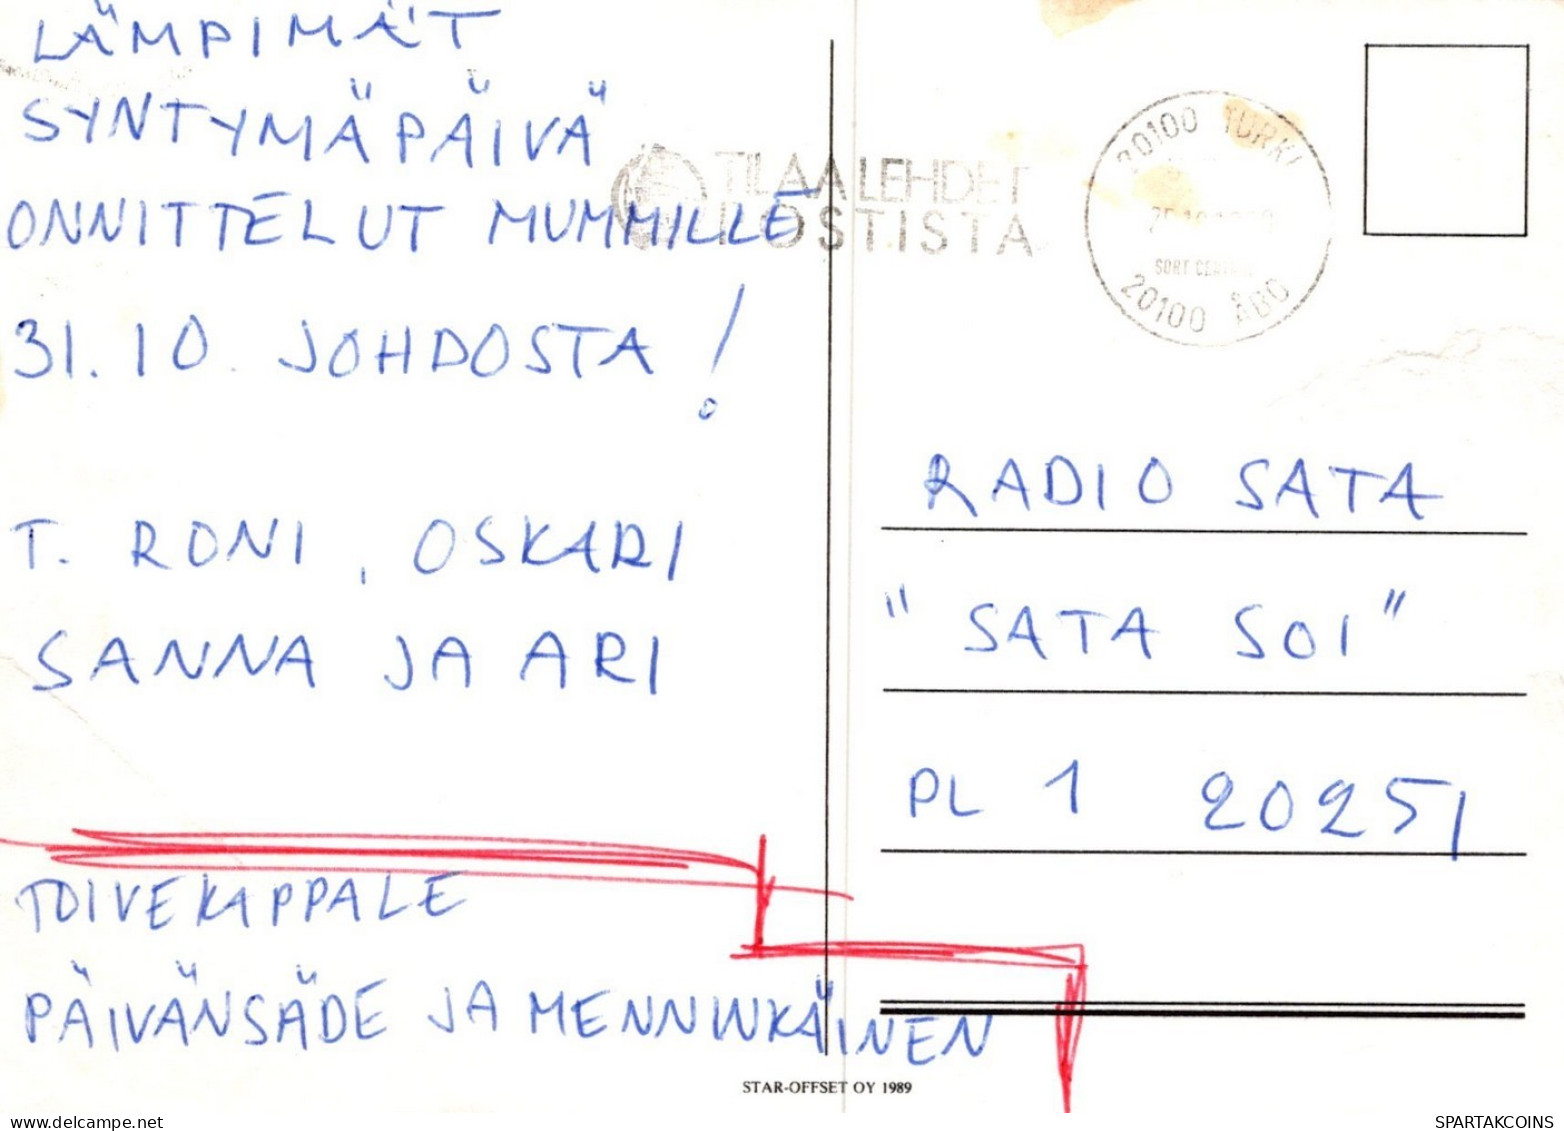 LÄMPIMÄT
SYNTYMÄPÄIVÄ
ONNITTELUT MUMMILLE
31.10. JOHDOSTA!
T. RONI, OSKARI
SANNA JA ARI
TOIVEKAPPALE
PÄIVÄNSÄDE JA MENNINKÄINEN
TILAA LEHDET
POSTISTA
20100 TURKU
20100 ÅBO
RADIO SATA
"SATA SOI"
PL 1 20251
STAR-OFFSET OY 1989
SPARTAKCOINS